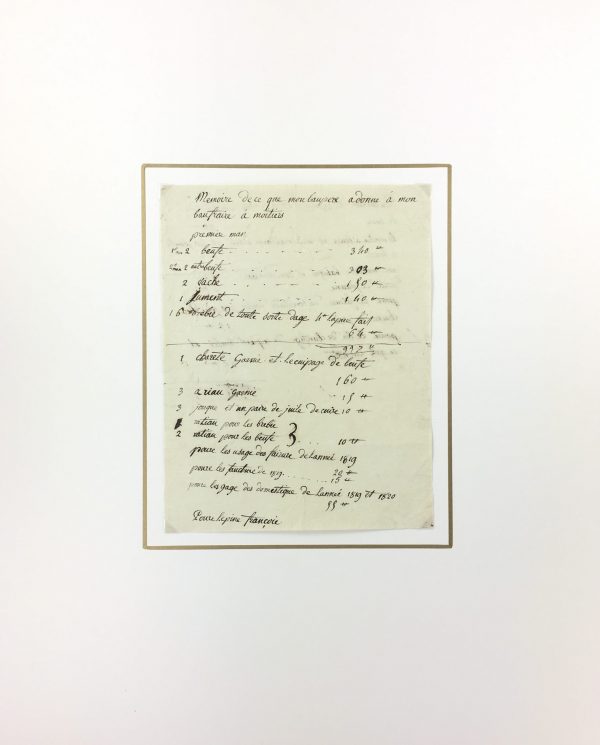 Memoire de ce que mon baupere a donne à mon
baufraire a moitiers
premier mar
2 beufe 340 ₶
2 beufe 303 ₶
2 vache 150 ₶
1 jument 140 ₶
16 brebie de toute sorte dage 4₶ la piece fait
64 ₶
997 ₶
1 charete Garnie et lecuipage de beufe
160 ₶
3 ariau Garnie 15 ₶
3 jougue et un paire de juile de cuire 10 ₶
1 ratiau pour les brebie
2 ratiau pour les beufe 3 10 ₶
poure les usage des faisure de lannée 1819
poure les fauchure de 1819 20 ₶
15 ₶
poure les gage des domestique de lannée 1819 et 1820
55 ₶
Poure lepine françoie